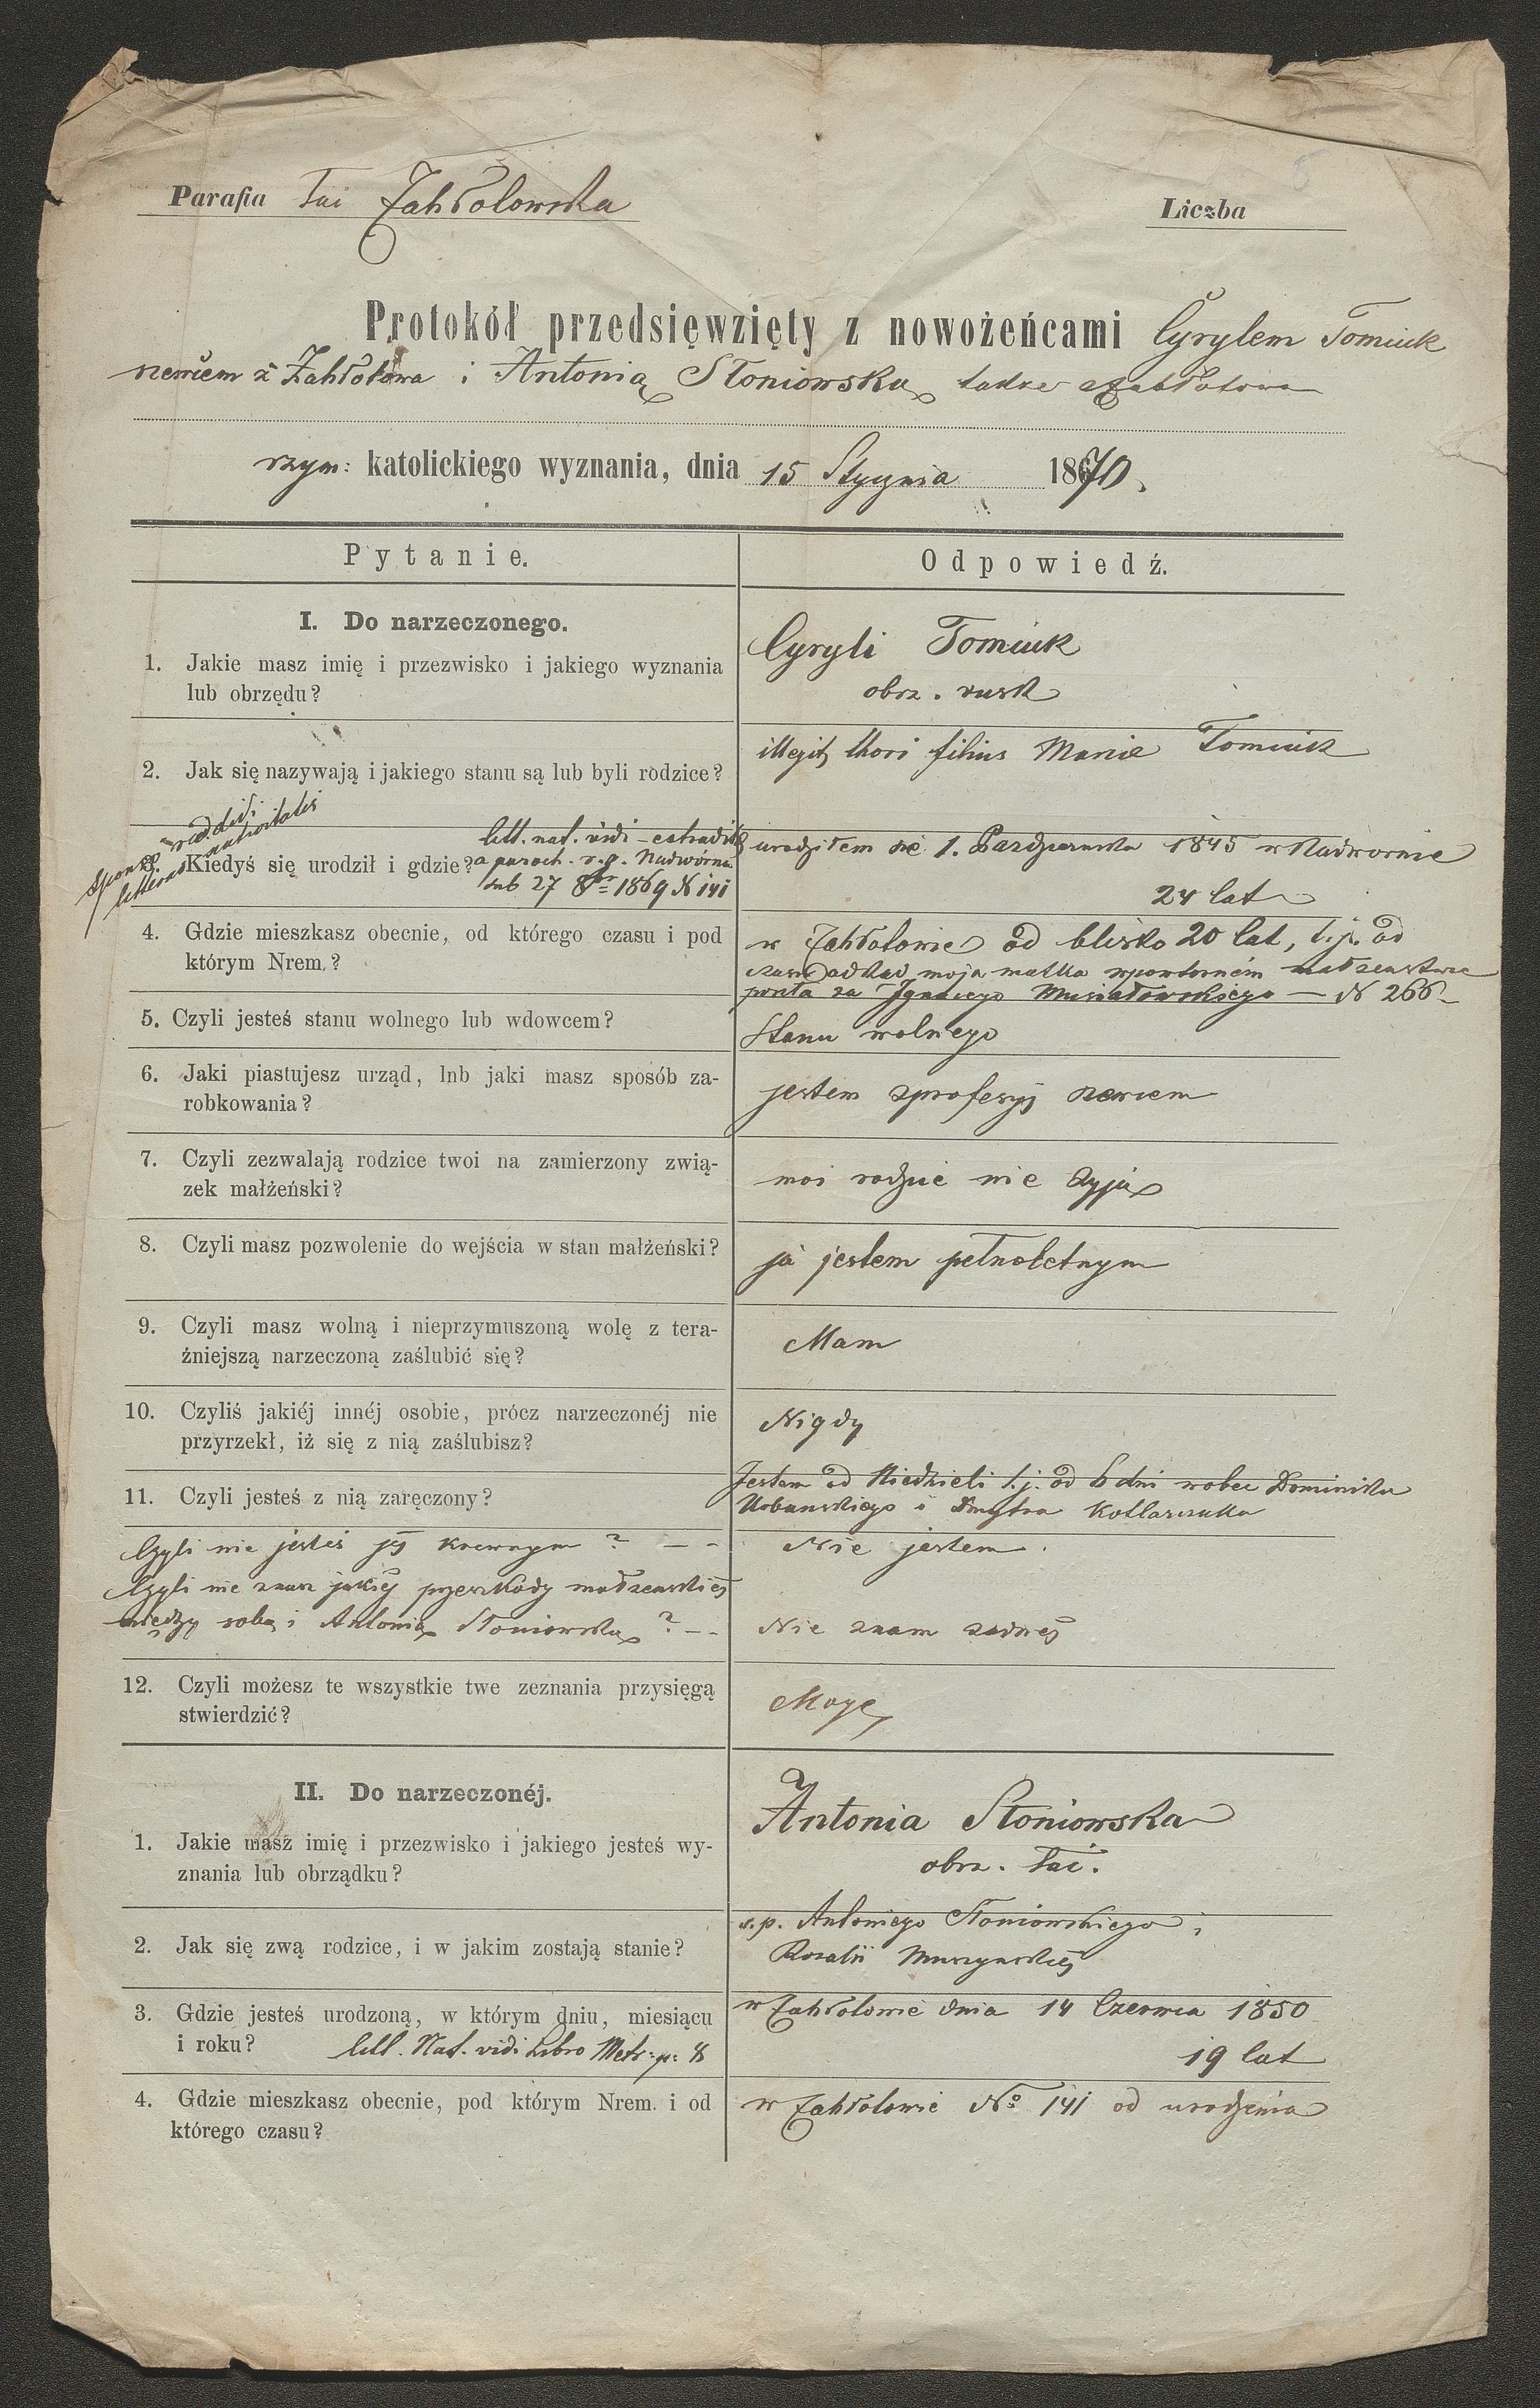 Parafia łac Zabłotowska
Liczba
Protokół przedsięwzięty z nowożeńcami Cyrylem Tomiuk
szewcem z Zabłotowa i Antonią Słoniowską także z Zabłotowa
rzym: katolickiego wyznania, dnia 15 Stycznia 1870.
Pytanie.
Odpowiedź.
I. Do narzeczonego.
1. Jakie masz imię i przezwisko i jakiego wyznania
lub obrzędu?
Cyryli Tomiuk
obrz. rusk
2. Jak się nazywają i jakiego stanu są lub byli rodzice?
illegit thori filius Maniæ Tomiuk
Sponso reddidi
litteras nativitatis
3. Kiedyś się urodził i gdzie?
litt. nat. vidi - extradit
a paroch. r. g. Nadwórna
sub 27 8br 1869 N 141
urodziłem sie 1. Pazdziernika 1845 w Nadwornie
24 lat
4. Gdzie mieszkasz obecnie, od którego czasu i pod
którym Nrem.?
w Zabłotowie od blisko 20 lat, t.j. od
czasu odkad moja matka wpowtorném małzenstwie
poszła za Ignacego Musiałowskiego — N 266
5. Czyli jesteś stanu wolnego lub wdowcem?
Stanu wolnego
6. Jaki piastujesz urząd, lnb jaki masz sposób za-
robkowania?
jestem zprofesyj szewcem
7. Czyli zezwalają rodzice twoi na zamierzony zwią-
zek małżeński?
moi rodzice nie żyją
8. Czyli masz pozwolenie do wejścia w stan małżeński?
ja jestem pełnoletnym
9. Czyli masz wolną i nieprzymuszoną wolę z tera-
źniejszą narzeczoną zaślubić się?
Mam
10. Czyliś jakiéj innéj osobie, prócz narzeczonéj nie
przyrzekł, iż się z nią zaślubisz?
Nigdy
11. Czyli jesteś z nią zaręczony?
Jestem od Niedzieli t.j. od 6 dni wobec Dominika
Urbanskiego i Dmytra Kotlarczuka
Czyli nie jesteś jéj krewnym? — -
Nie jestem.
Czyli nie znasz jakiéj przeszkody małzenskiéj
między sobą i Antonią Słoniowską? - -
Nie znam zadnéj
12. Czyli możesz te wszystkie twe zeznania przysięgą
stwierdzić?
Mogę
II. Do narzeczonéj.
1. Jakie masz imię i przezwisko i jakiego jesteś wy-
znania lub obrządku?
Antonia Słoniowska
obrz. łać.
2. Jak się zwą rodzice, i w jakim zostają stanie?
s.p. Antoniego Słoniowskiego i
Rozalii Muszynskiéj
3. Gdzie jesteś urodzoną, w którym dniu, miesiącu
i roku? litt. Nat. vidi Libro Metr: p: 8
w Zabłotowie dnia 14 Czerwca 1850
19 lat
4. Gdzie mieszkasz obecnie, pod którym Nrem. i od
którego czasu?
w Zabłotowie No 141 od urodzenia